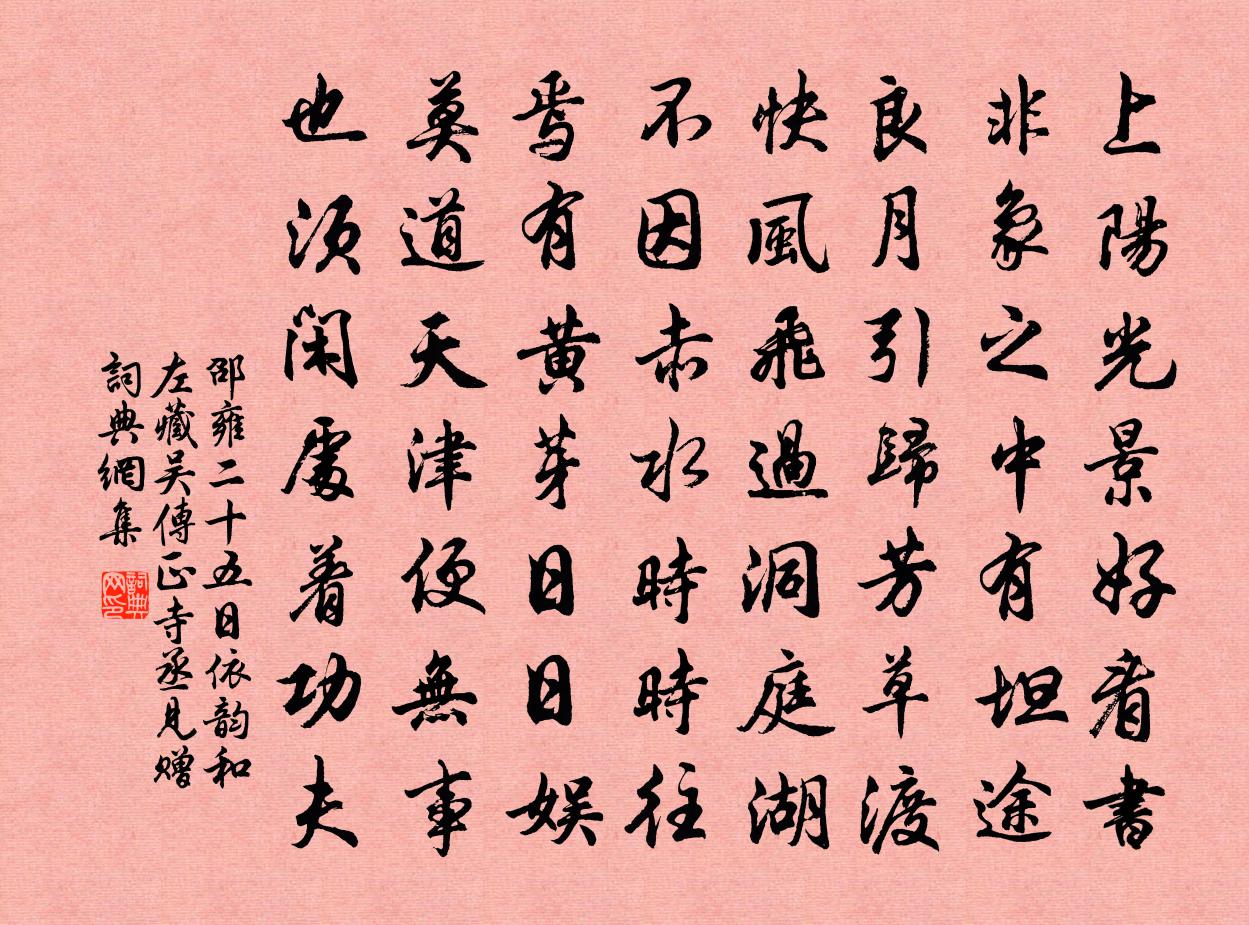 上陽光景好看書
非象之中有坦途
良月引歸芳草渡
快風飛過洞庭湖
不因赤水時時往
焉有黃芽日日娛
莫道天津便無事
也須閑處着功夫
邵雍二十五日依韵和
左藏吴傳正寺丞見贈
詞典網集
詞典网印